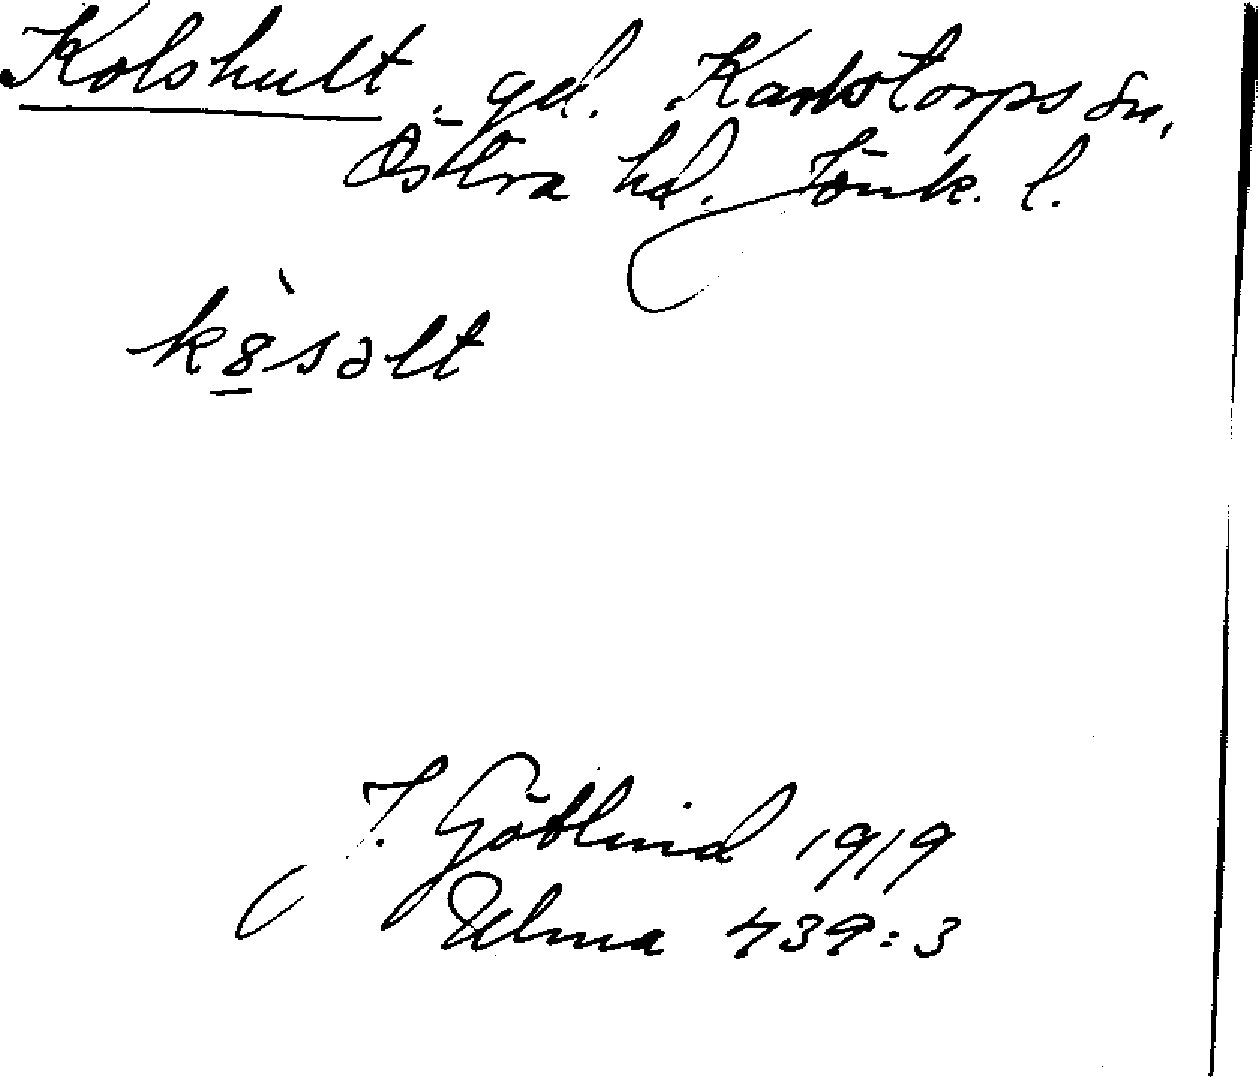 Kolshult, gd. Karlstorps sn,
Östra hd. Jönk. l.
kò̱salt
J. Götlind 1919
Ulma 739:3